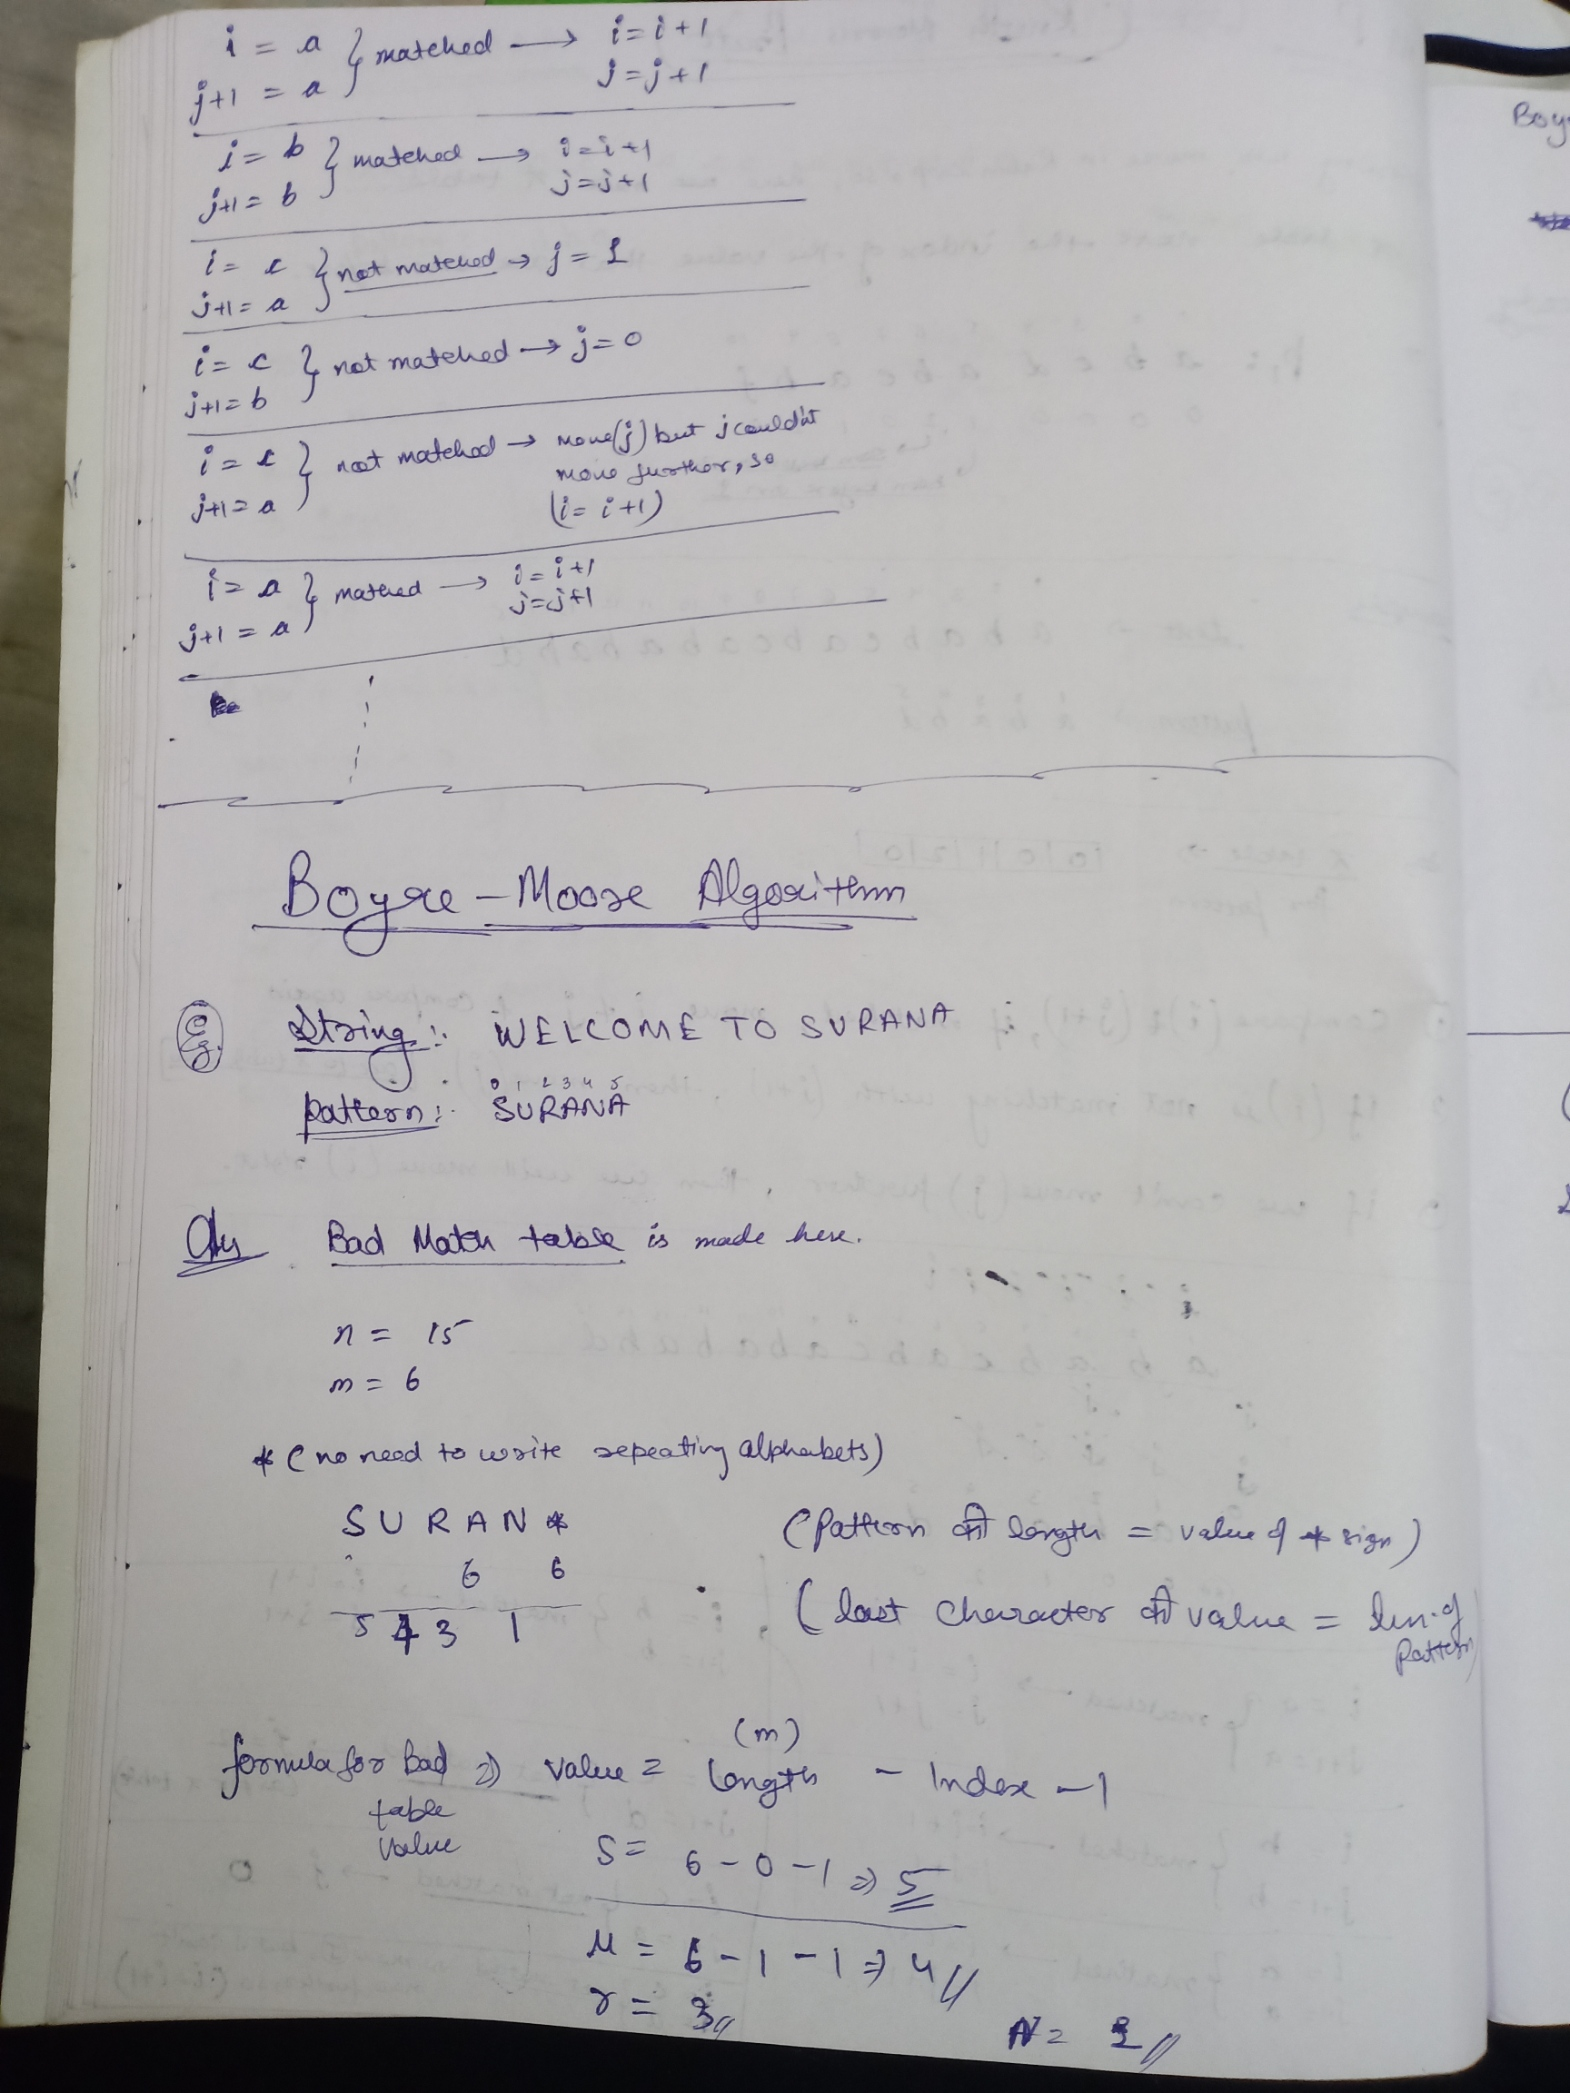 i = a } matched → i=i+1
j+1 = a j=j+1
i= b } matched → i=i+1
j+1= b j=j+1
i= c } not matched → j= 1
j+1= a
i= c } not matched → j=0
j+1=b
i= c } not matched → move(j) but j couldn't
move further, so
j+1= a (i= i+1)
i= a } matched → i=i+1
j+1 = a j=j+1
Boyre-Moore Algorithm
Eg. String: WELCOME TO SURANA
0 1 2 3 4 5
pattern: SURANA
Bad Match table is made here.
n = 15
m = 6
* (no need to write repeating alphabets)
S U R A N *
6 6
5 4 3 1
(Pattern की length = value of * sign)
(last character की value = len. of
Pattern)
(m)
formula for Bad ⇒ value = length - Index -1
table
value
S= 6-0-1 ⇒ 5
u = 6-1-1 ⇒ 4
r = 3
N = 1
Boy